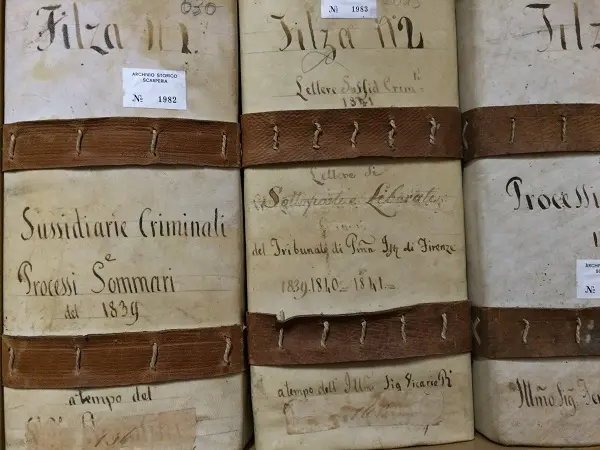 630
Filza N 1.
ARCHIVIO STORICO
SCARPERIA
No 1982
Sussidiarie Criminali
e
Processi Sommari
del 1839
a tempo del
No 1983
Filza N°2
Lettere Sussid Crim.li
1841
Lettere di
Sottoposti e Liberati
del Tribunale di Pma Isza di Firenze
1839.1840= 1841=
a tempo dell' Illmo Sig Vicario R
Filz
Processi
ARCHIV
SC
No
Illmo Sig.